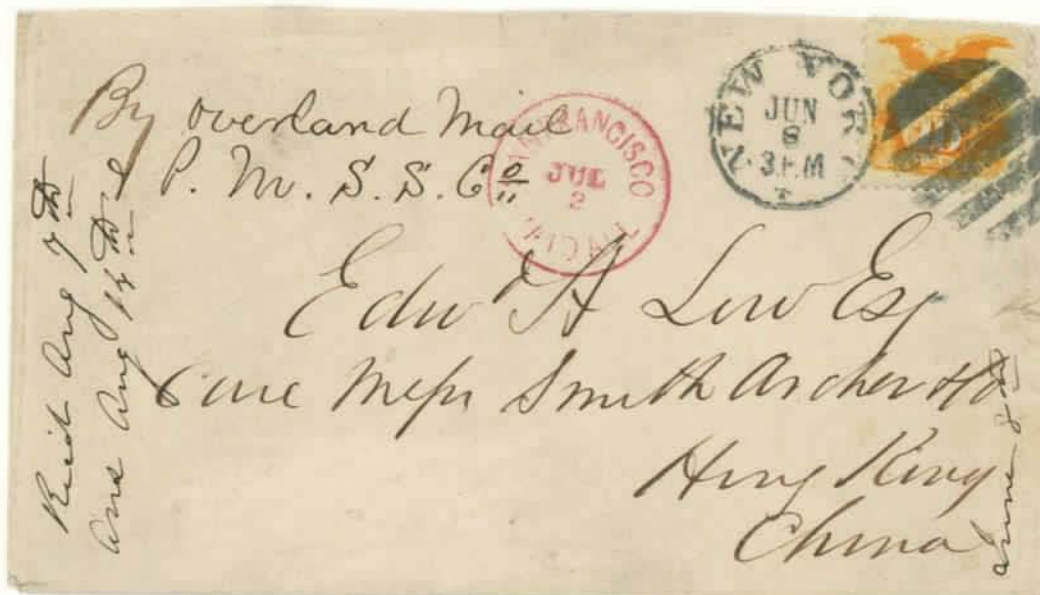 By Overland Mail
P. M. S. S. Co
SAN FRANCISCO
JUL
2
PAID ALL
NEW YORK
JUN
8
3 P.M
10
Edwd A Low Esq
Care Messrs Smith Archer & Co
Hong Kong
China
Recd Aug 7th
Ans Aug 14th
June 8th